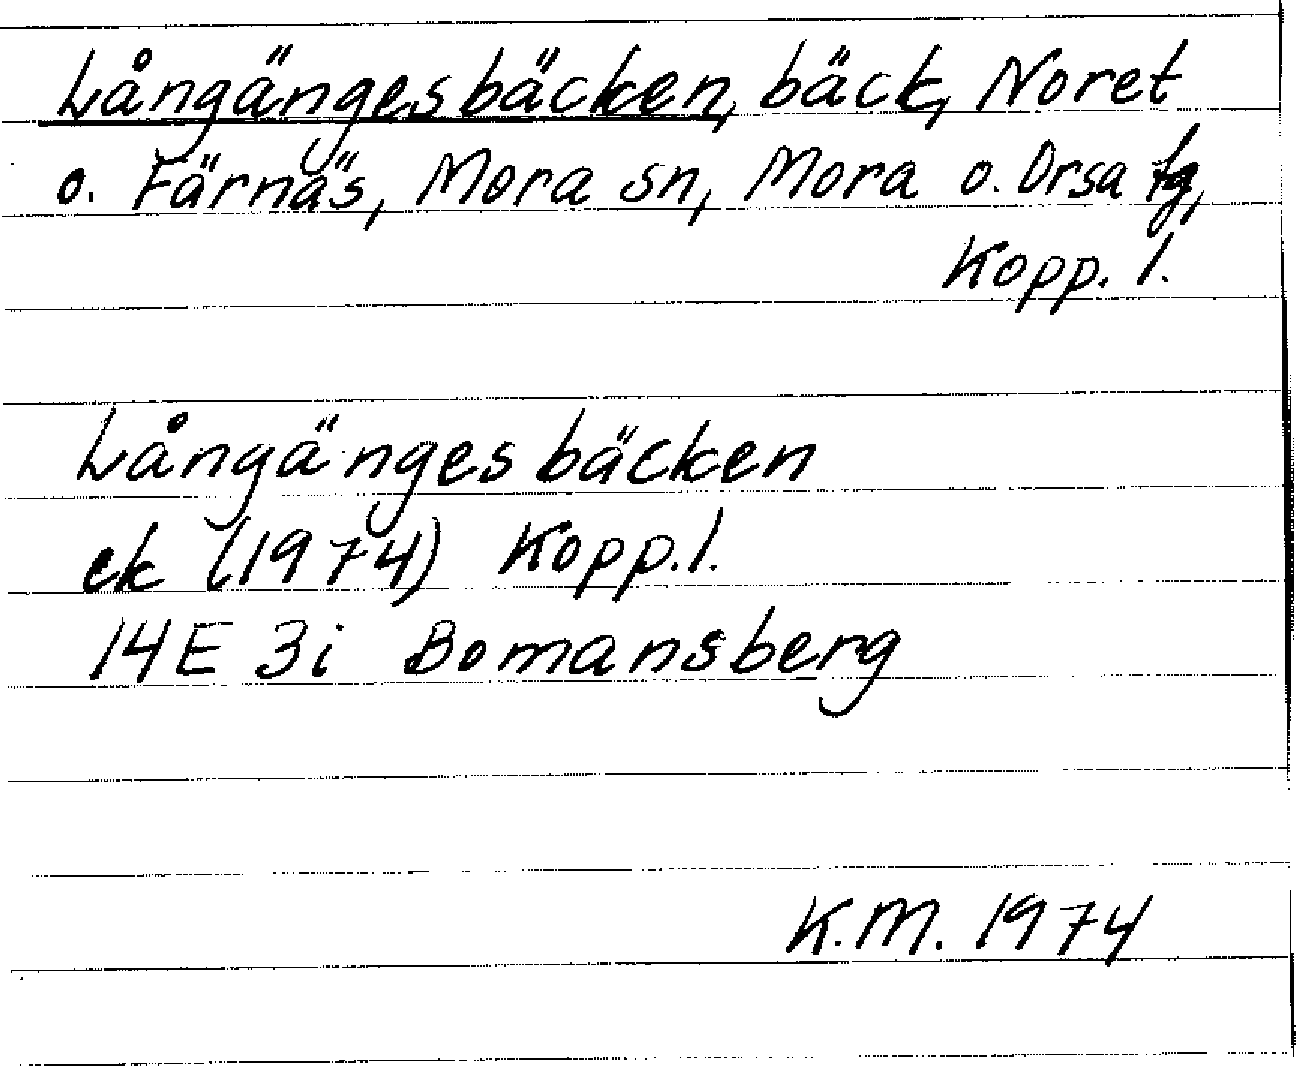 Långängesbäcken, bäck, Noret
o. Färnäs, Mora sn, Mora o. Orsa tg,
Kopp. l.
Långängesbäcken
ek (1974) Kopp. l.
14E 3i Bomansberg
K.M. 1974